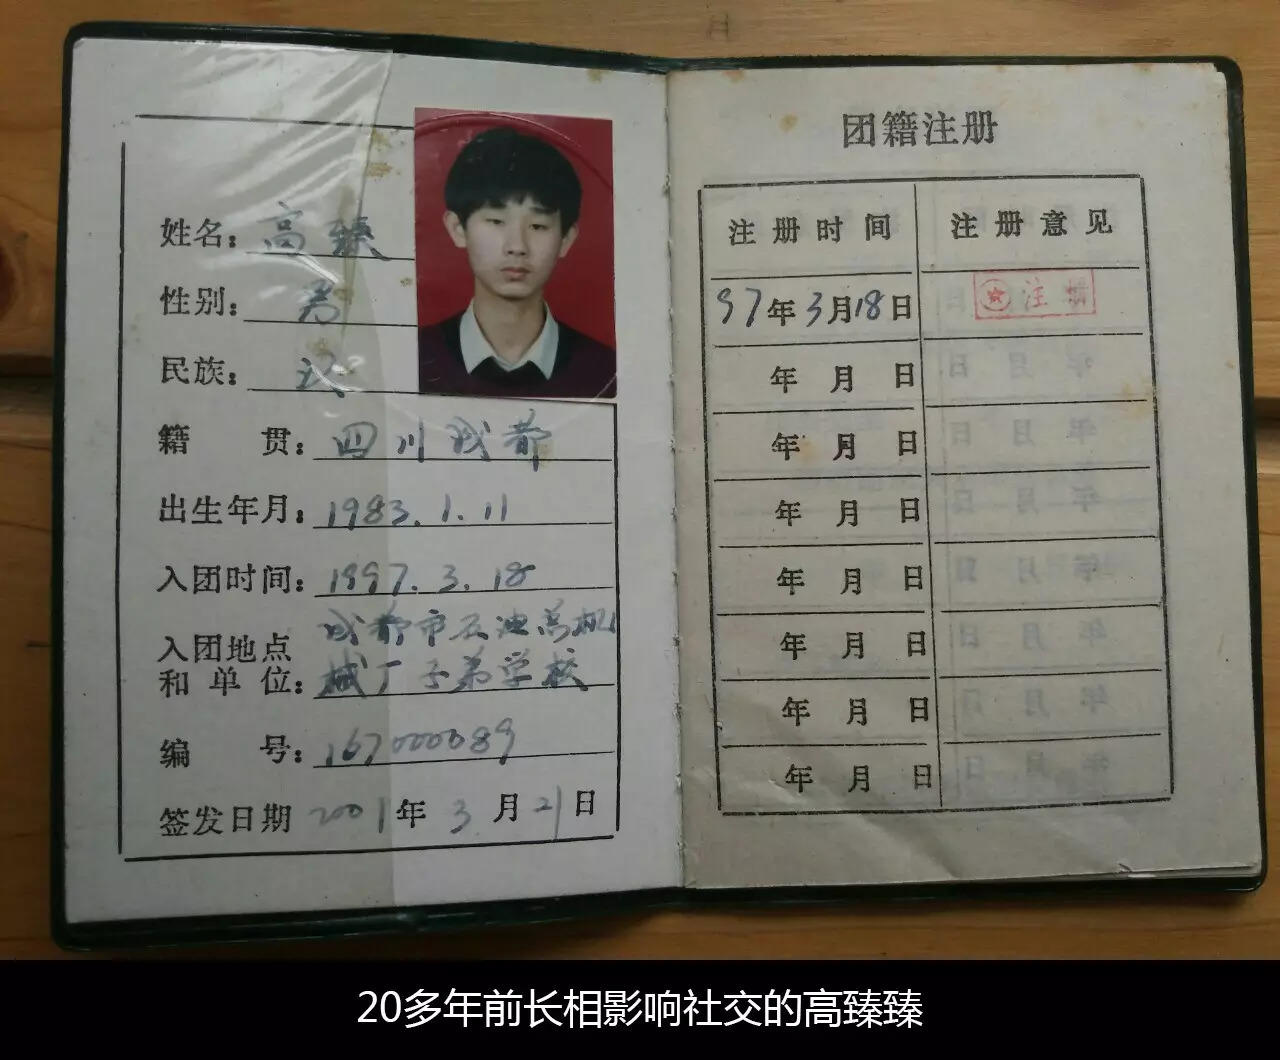 姓名：高臻
性别：男
民族：汉
籍贯：四川成都
出生年月：1983.1.11
入团时间：1997.3.18
入团地点和单位：成都市石油总机
械厂子弟学校
编号：167000089
签发日期 2001年3月21日
团籍注册
注册时间 注册意见
97年3月18日 注册
年 月 日
年 月 日
年 月 日
年 月 日
年 月 日
年 月 日
年 月 日
20多年前长相影响社交的高臻臻